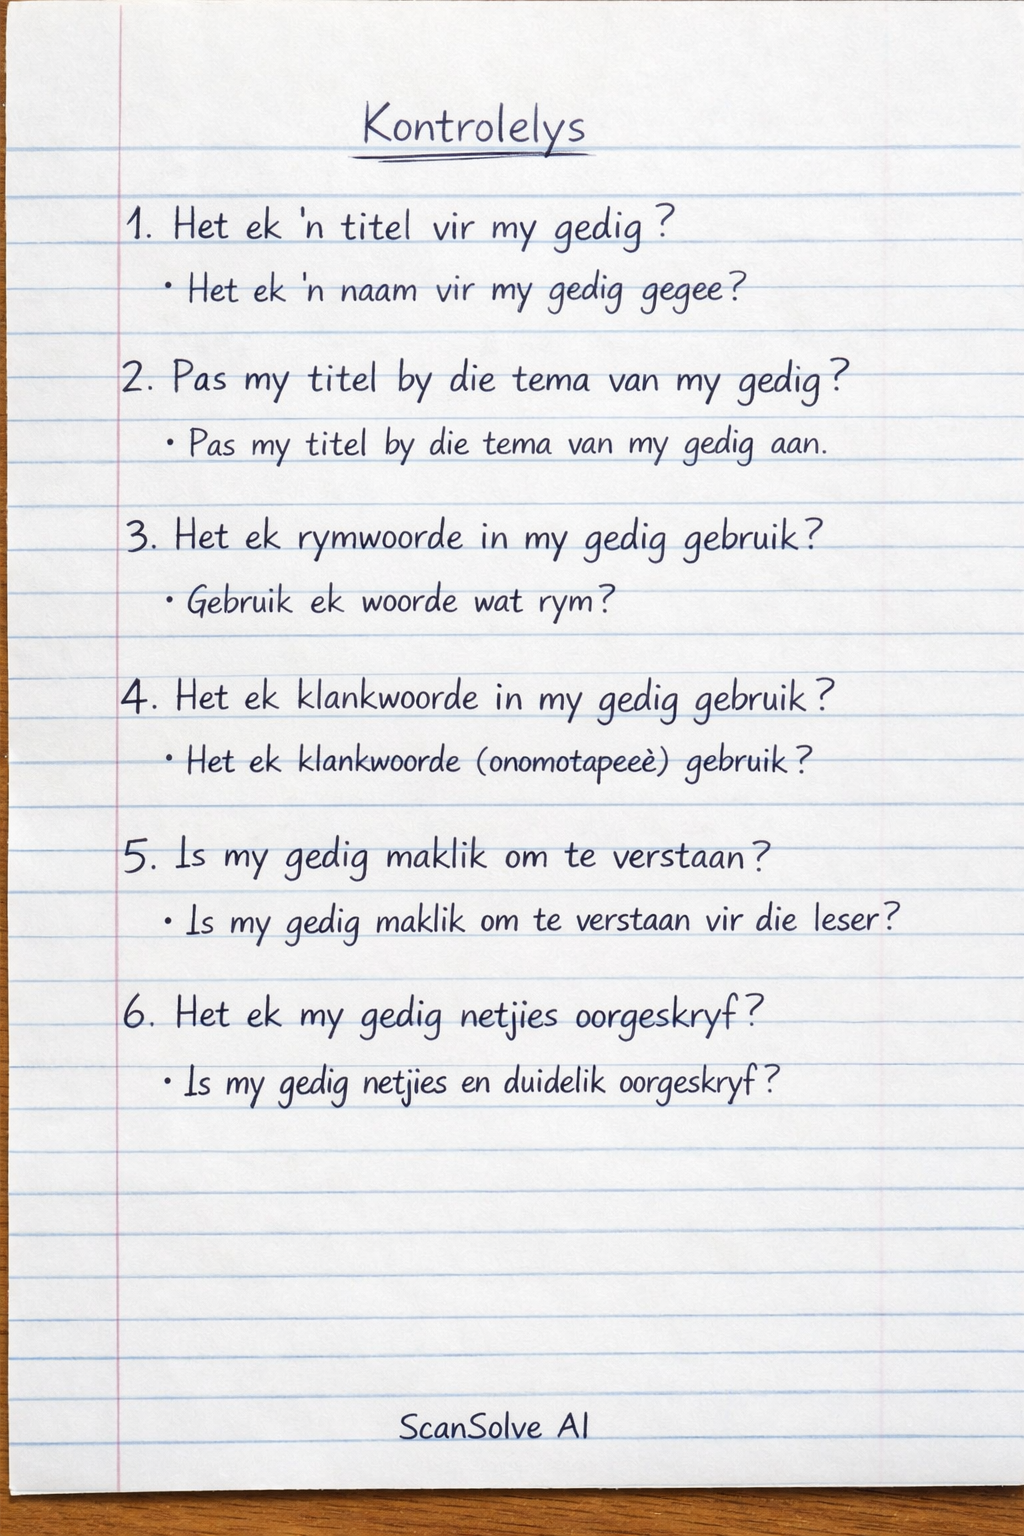 Kontrolelys
1. Het ek 'n titel vir my gedig?
• Het ek 'n naam vir my gedig gegee?
2. Pas my titel by die tema van my gedig?
• Pas my titel by die tema van my gedig aan.
3. Het ek rymwoorde in my gedig gebruik?
• Gebruik ek woorde wat rym?
4. Het ek klankwoorde in my gedig gebruik?
• Het ek klankwoorde (onomotapeeè) gebruik?
5. Is my gedig maklik om te verstaan?
• Is my gedig maklik om te verstaan vir die leser?
6. Het ek my gedig netjies oorgeskryf?
• Is my gedig netjies en duidelik oorgeskryf?
ScanSolve AI